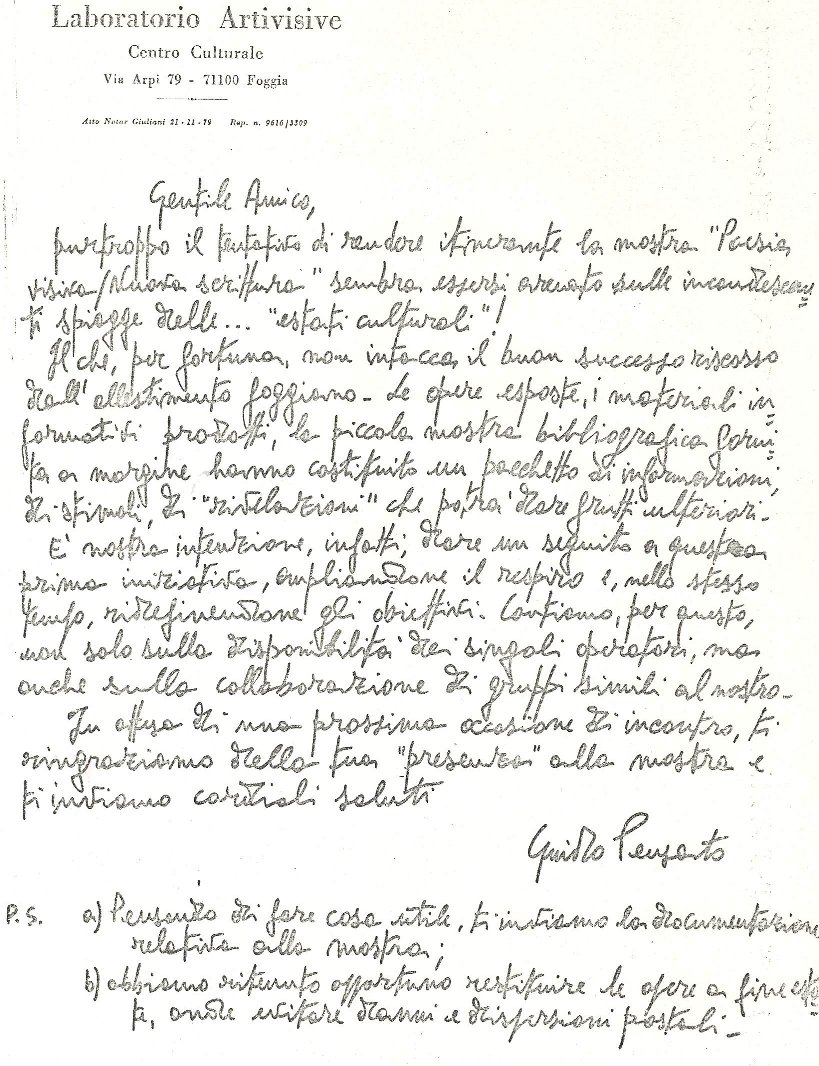 Laboratorio Artivisive
Centro Culturale
Via Arpi 79 - 71100 Foggia
Atto Notar Giuliani 21 - 11 - 79 Rep. n. 9616/3309
Gentile Amico,
purtroppo il tentativo di rendere itinerante la mostra "Poesia
visiva/Nuova scrittura" sembra essersi arenato sulle incandescen
ti spiagge delle... "estati culturali"!
Il che, per fortuna, non intacca il buon successo riscosso
dall'allestimento foggiano - Le opere esposte, i materiali in
formativi prodotti, la piccola mostra bibliografica forni
ta a margine hanno costituito un pacchetto di informazioni,
di stimoli, di "rivelazioni" che potrà dare frutti ulteriori -
E' nostra intenzione, infatti, dare un seguito a questa
prima iniziativa, ampliandone il respiro e, nello stesso
tempo, ridefinendone gli obiettivi. Contiamo, per questo,
non solo sulla disponibilità dei singoli operatori, ma
anche sulla collaborazione di gruppi simili al nostro -
In attesa di una prossima occasione di incontro, ti
ringraziamo della tua "presenza" alla mostra e
ti inviamo cordiali saluti
Guido Pensato
P.S. a) Pensando di fare cosa utile, ti inviamo la documentazione
relativa alla mostra;
b) abbiamo ritenuto opportuno restituire le opere a fine esta
te, onde evitare danni e dispersioni postali -